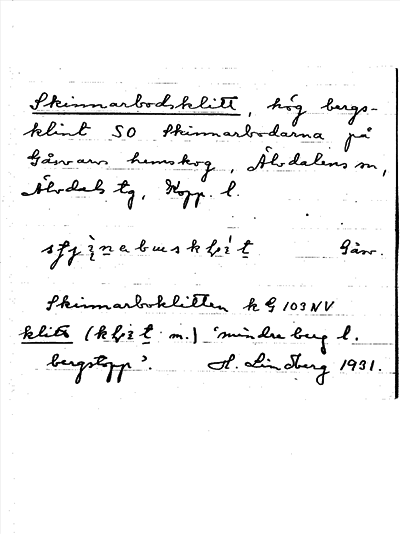 Skinnarbodsklitt, hög bergs-
klint SO Skinnarbodarna på
Gåsvarv hemskog, Älvdalens sn,
Älvdals tg, Kopp. l.
Gåsv.
Skinnarboklitten k G 103 NV
klitt ( m.) 'mindre berg l.
bergstopp'. H. Lindberg 1931.